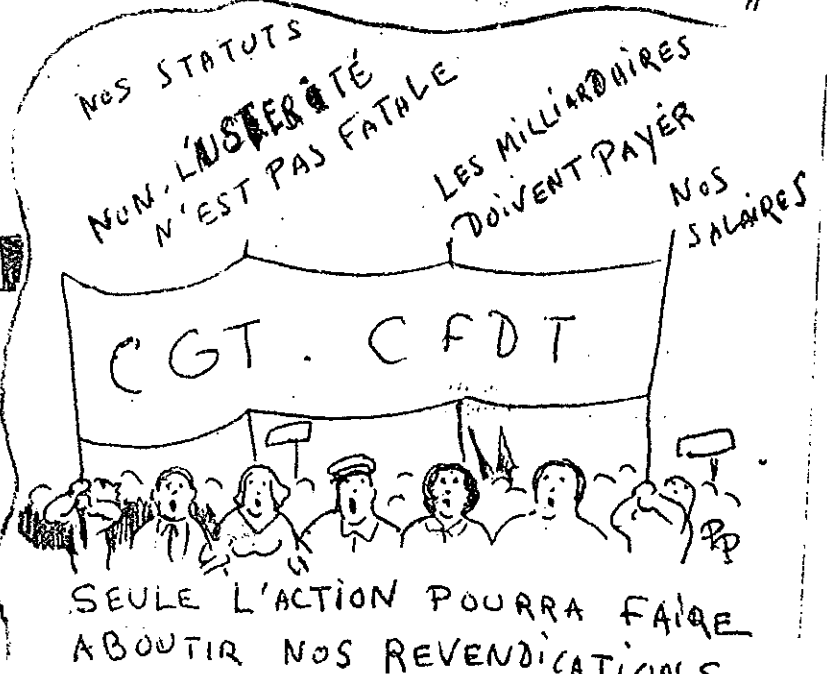 NOS STATUTS
NON, L'AUSTERITÉ
N'EST PAS FATALE
LES MILLIARDAIRES
DOIVENT PAYER
NOS
SALAIRES
CGT. CFDT
PP
SEULE L'ACTION POURRA FAIRE
ABOUTIR NOS REVENDICATIONS